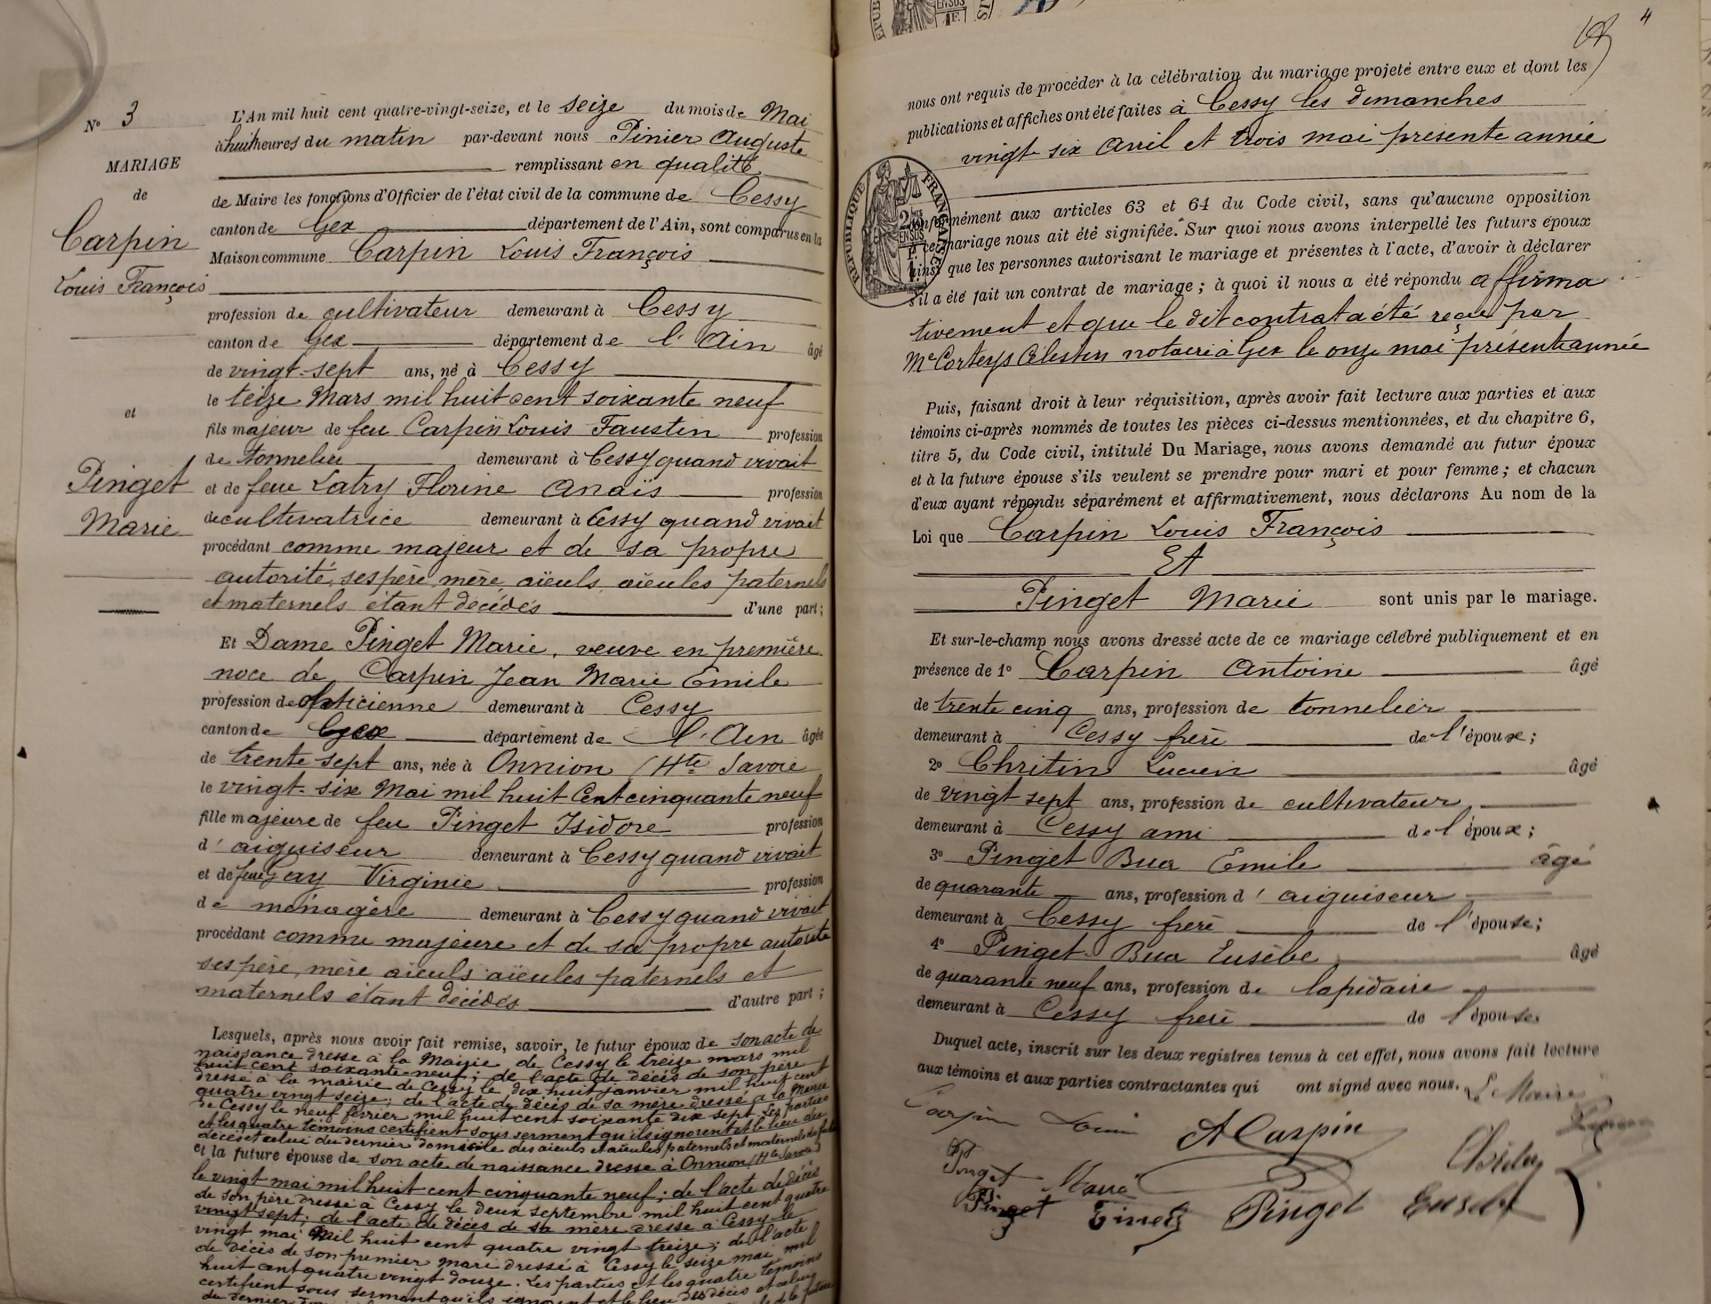 N° 3
MARIAGE
de
Carpin
Louis François
et
Pinget
Marie
L'An mil huit cent quatre-vingt-seize, et le seize du mois de Mai
à huit heures du matin par-devant nous Pinier Auguste
remplissant en qualité
de Maire les fonctions d'Officier de l'état civil de la commune de Cessy
canton de Gex département de l'Ain, sont comparus en la
Maison commune Carpin Louis François
profession de cultivateur demeurant à Cessy
canton de Gex département de l'Ain âgé
de vingt-sept ans, né à Cessy
le treize Mars mil huit cent soixante neuf
fils majeur de feu Carpin Louis Faustin profession
de tonnelier demeurant à Cessy quand vivait
et de feue Latry Florine Anaïs profession
de cultivatrice demeurant à Cessy quand vivait
procédant comme majeur et de sa propre
autorité, ses père, mère, aïeuls, aïeules paternels
et maternels étant décédés d'une part;
Et Dame Pinget Marie, veuve en première
noce de Carpin Jean Marie Emile
profession de demeurant à Cessy
canton de Gex département de l'Ain âgée
de trente sept ans, née à Onnion (Hte Savoie
le vingt-six Mai mil huit Cent cinquante neuf
fille majeure de feu Pinget Isidore profession
d'aiguiseur demeurant à Cessy quand vivait
et de feue Gay Virginie profession
de ménagère demeurant à Cessy quand vivait
procédant comme majeure et de sa propre autorité
ses père, mère aïeuls aïeules paternels et
maternels étant décédés d'autre part;
Lesquels, après nous avoir fait remise, savoir, le futur époux de son acte de
naissance dressé à la Mairie de Cessy le treize mars mil
huit cent soixante neuf; de l'acte de décès de son père
dressé à la mairie de Cessy le dix huit janvier mil huit cent
quatre vingt seize; de l'acte de décès de sa mère dressé à la Mairie
de Cessy le neuf février mil huit cent soixante dix sept. Les parties
et les quatre témoins certifient sous serment qu'ils ignorent et le lieu du
décès et celui du dernier domicile des aïeuls et aïeules paternels et maternels du futur
et la future épouse de son acte de naissance dressé à Onnion (Hte Savoie)
le vingt mai mil huit cent cinquante neuf; de l'acte de décès
de son père dressé à Cessy le deux septembre mil huit cent quatre
vingt sept; de l'acte de décès de sa mère dressé à Cessy le
vingt mai mil huit cent quatre vingt treize; de l'acte
de décès de son premier mari dressé à Cessy le seize mai mil
huit cent quatre vingt douze. Les parties et les quatre témoins
certifient sous serment qu'ils ignorent et le lieu des décès et celui
du dernier
4
nous ont requis de procéder à la célébration du mariage projeté entre eux et dont les
publications et affiches ont été faites à Cessy les dimanches
vingt-six avril et trois mai présente année
RÉPUBLIQUE FRANÇAISE
conformément aux articles 63 et 64 du Code civil, sans qu'aucune opposition
à ce mariage nous ait été signifiée. Sur quoi nous avons interpellé les futurs époux
ainsi que les personnes autorisant le mariage et présentes à l'acte, d'avoir à déclarer
s'il a été fait un contrat de mariage; à quoi il nous a été répondu affirma
tivement et que le dit contrat a été reçu par
Me Célestin notaire à Gex le onze mai présente année
Puis, faisant droit à leur réquisition, après avoir fait lecture aux parties et aux
témoins ci-après nommés de toutes les pièces ci-dessus mentionnées, et du chapitre 6,
titre 5, du Code civil, intitulé Du Mariage, nous avons demandé au futur époux
et à la future épouse s'ils veulent se prendre pour mari et pour femme; et chacun
d'eux ayant répondu séparément et affirmativement, nous déclarons Au nom de la
Loi que Carpin Louis François
ET
Pinget Marie sont unis par le mariage.
Et sur-le-champ nous avons dressé acte de ce mariage célébré publiquement et en
présence de 1° Carpin Antoine âgé
de trente cinq ans, profession de tonnelier
demeurant à Cessy frère de l'époux;
2° Chritin Lucien âgé
de vingt sept ans, profession de cultivateur
demeurant à Cessy ami de l'époux;
3° Pinget Bua Emile âgé
de quarante ans, profession d'aiguiseur
demeurant à Cessy frère de l'épouse;
4° Pinget Bua Eusèbe âgé
de quarante neuf ans, profession de lapidaire
demeurant à Cessy frère de l'épouse
Duquel acte, inscrit sur les deux registres tenus à cet effet, nous avons fait lecture
aux témoins et aux parties contractantes qui ont signé avec nous. Le Maire
Carpin Louis A Carpin
Pinget Marie
Pinget Pinget Eusèbe